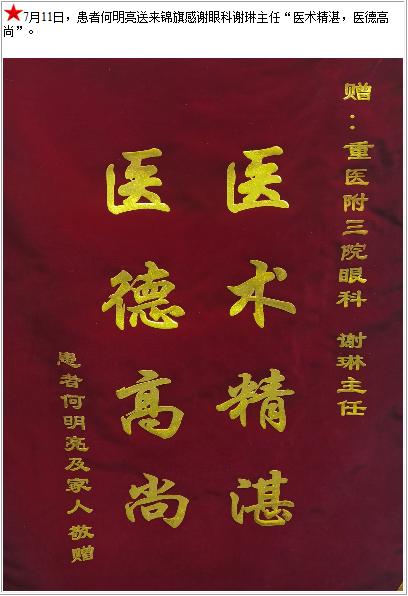 7月11日，患者何明亮送来锦旗感谢眼科谢琳主任“医术精湛，医德高
尚”。
赠：重医附三院眼科 谢琳主任
医术精湛
医德高尚
患者何明亮及家人 敬赠